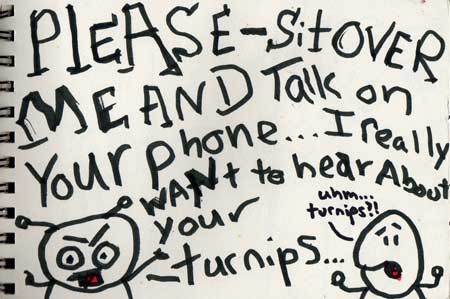 PLEASE-SitOVER
ME AND Talk on
Your Phone... I really
WANt to hear About
your
turnips...
uhm...
turnips?!